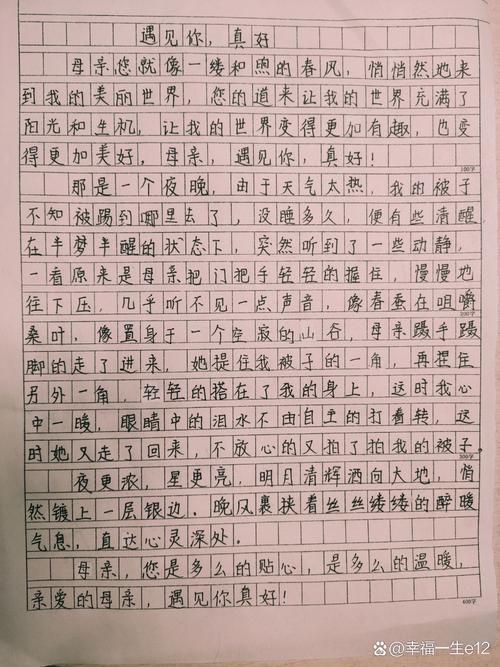 遇见你，真好
母亲您就像一缕和煦的春风，悄悄然地来
到我的美丽世界，您的道来让我的世界充满了
阳光和生机，让我的世界变得更加有趣，也变
得更加美好，母亲，遇见你，真好！
100字
那是一个夜晚，由于天气太热，我的被子
不知被踢到哪里去了，没睡多久，便有些清醒
在半梦半醒的状态下，突然听到了一些动静，
一看原来是母亲把门把手轻轻的握住，慢慢地
往下压，几乎听不见一点声音，像春蚕在咀嚼
200字
桑叶，像置身于一个空寂的山谷，母亲蹑手蹑
脚的走了进来，她提住我被子的一角，再捏住
另外一角，轻轻的搭在了我的身上，这时我心
中一暖，眼睛中的泪水不由自主的打着转，这
时她又走了回来，不放心的又拍了拍我的被子。
300字
夜更浓，星更亮，明月清辉洒向大地，悄
然镀上一层银边。晚风裹挟着丝丝缕缕的醉暖
气息，直达心灵深处。
母亲，您是多么的贴心，是多么的温暖，
亲爱的母亲，遇见你真好！
400字
@幸福一生e12